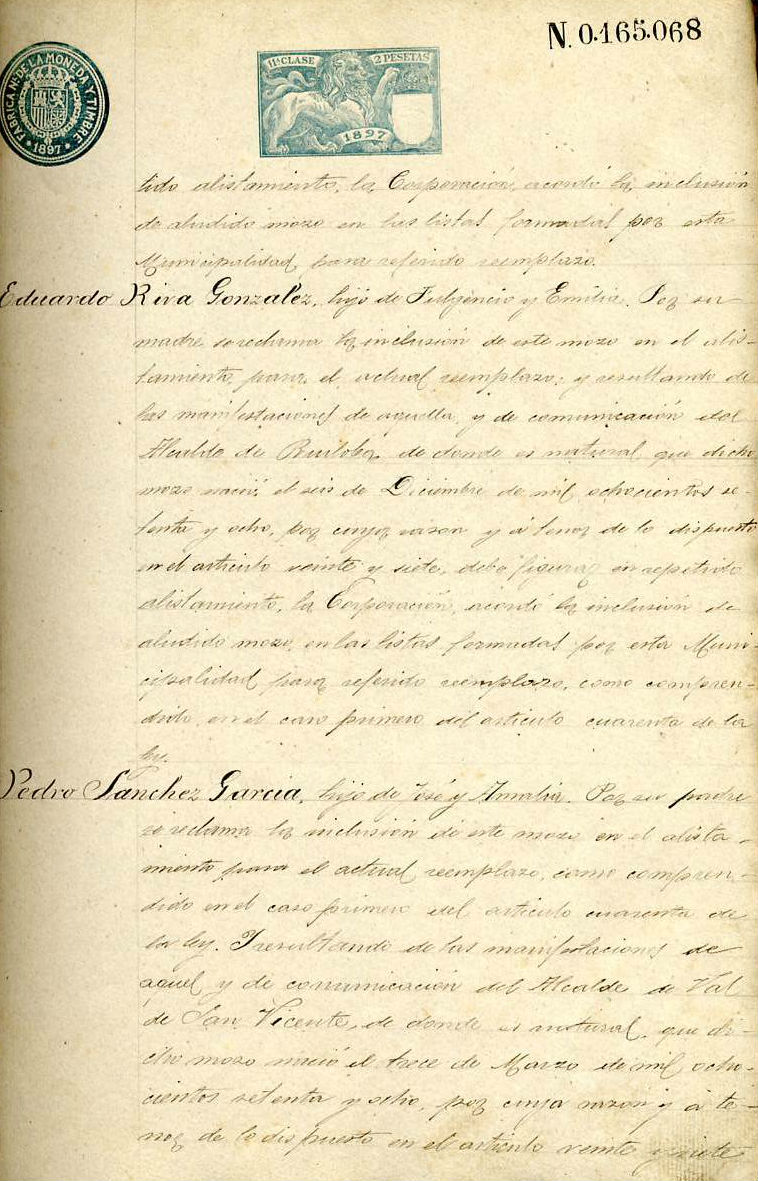 N. 0.165.068
FABRICA NAL DE LA MONEDA Y TIMBRE
• 1897 •
11ª CLASE
2 PESETAS
1897
tido alistamiento, la Corporación, acordó la inclusión
de aludido mozo en las listas formadas por esta
Municipalidad, para referido reemplazo.
Eduardo Riva Gonzalez, hijo de Fulgencio y Emilia. Por su
madre, se reclama la inclusión de este mozo en el alis-
tamiento, para el actual reemplazo; y resultando de
las manifestaciones de aquella, y de comunicación del
Alcalde de Ruiloba, de donde es natural, que dicho
mozo nació, el seis de Diciembre de mil ochocientos se-
tenta y ocho, por cuya razon y á tenor de lo dispuesto
en el articulo veinte y siete, debe figurar en repetido
alistamiento, la Corporación, acordó la inclusión de
aludido mozo, en las listas formadas por esta Muni-
cipalidad para referido reemplazo, como compren-
dido, en el caso primero del articulo cuarenta de la
ley.
Pedro Sanchez Garcia, hijo de José y Amalia. Por su padre
se reclama la inclusión de este mozo en el alista-
miento para el actual reemplazo, como compren-
dido en el caso primero del articulo cuarenta de
la ley. Y resultando de las manifestaciones de
aquel y de comunicación del Alcalde de Val
de San Vicente, de donde es natural, que di-
cho mozo nació el trece de Marzo de mil ocho-
cientos setenta y ocho, por cuya razon y á te-
nor de lo dispuesto en el articulo veinte y siete